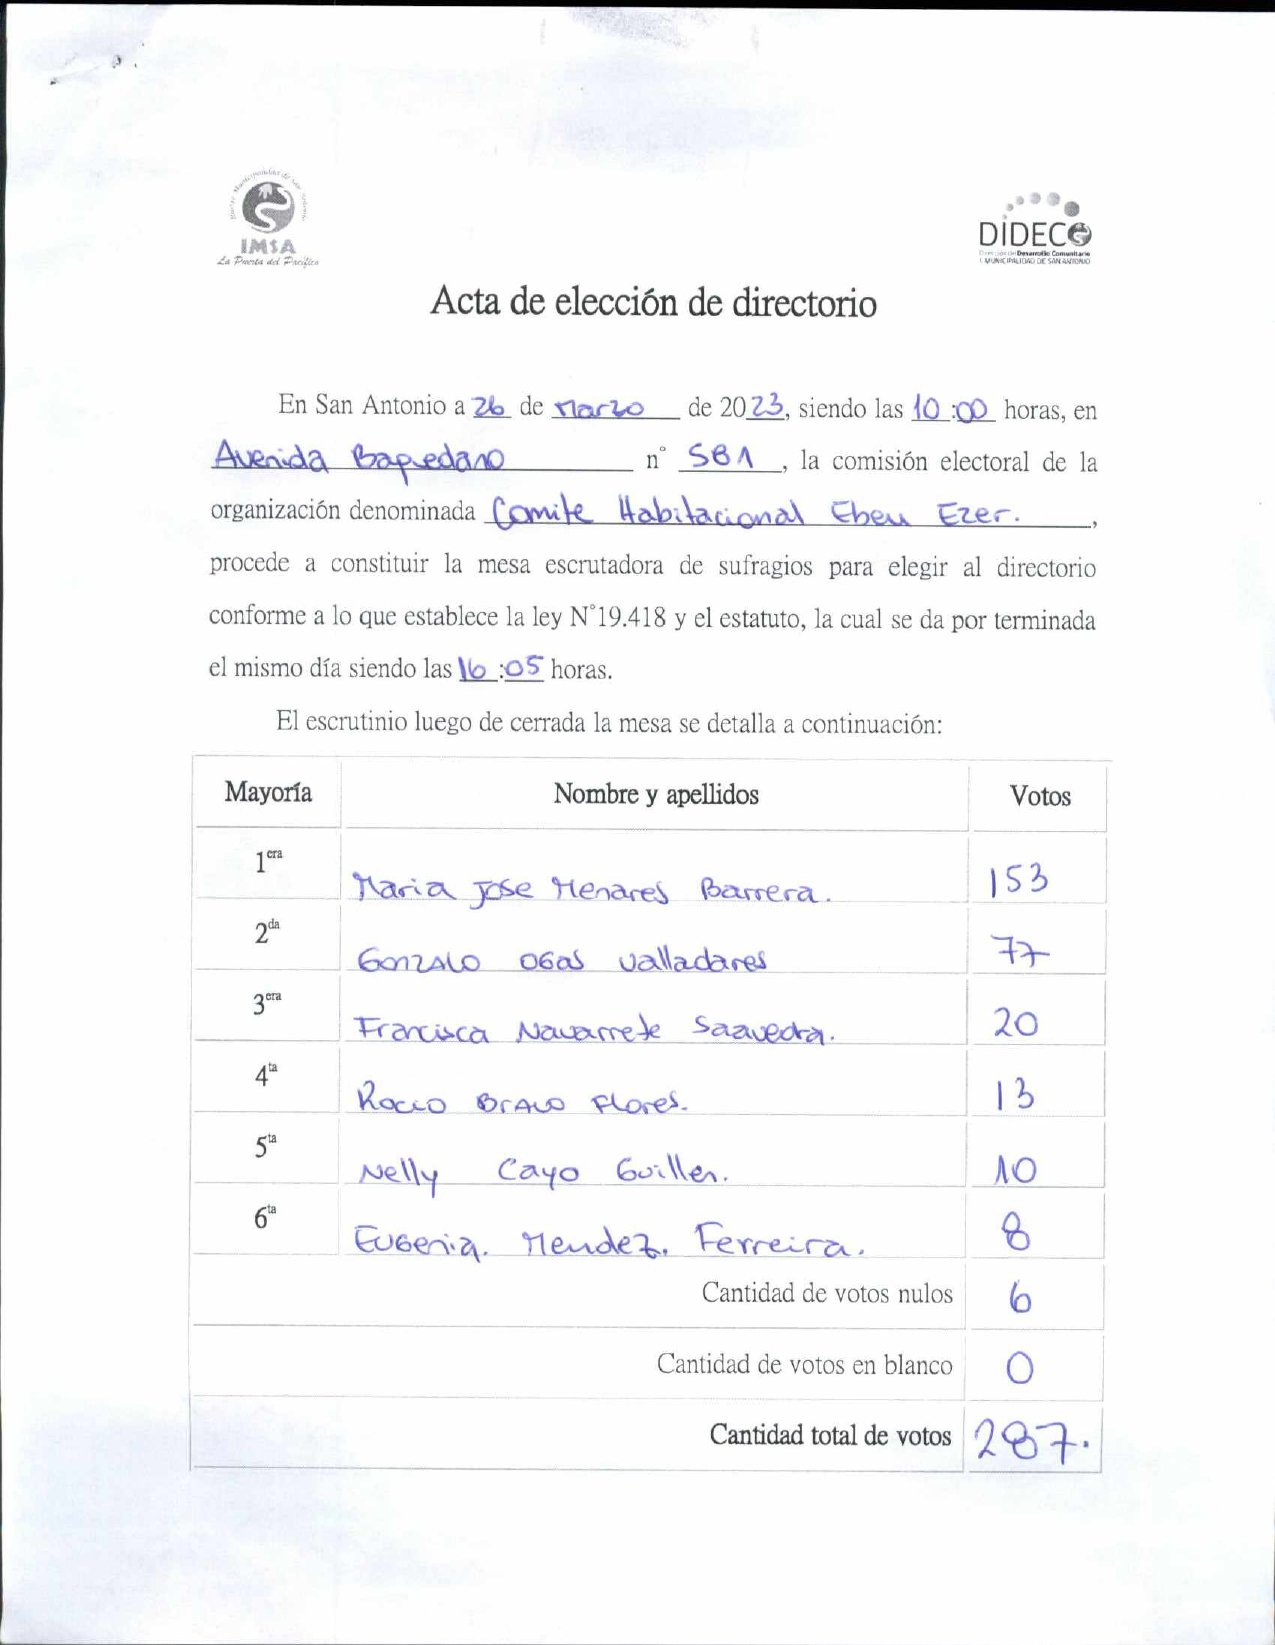 Ilustre Municipalidad de San Antonio
IMSA
La Puerta del Pacífico
DIDECO
Dirección de Desarrollo Comunitario
I. MUNICIPALIDAD DE SAN ANTONIO
Acta de elección de directorio
En San Antonio a 26 de Marzo de 2023, siendo las 10:00 horas, en
Avenida Baquedano n° 581, la comisión electoral de la
organización denominada Comite Habitacional Eben Ezer.,
procede a constituir la mesa escrutadora de sufragios para elegir al directorio
conforme a lo que establece la ley N°19.418 y el estatuto, la cual se da por terminada
el mismo día siendo las 16:05 horas.
El escrutinio luego de cerrada la mesa se detalla a continuación:
Mayoría Nombre y apellidos Votos
1era Maria Jose Menares Barrera. 153
2da Gonzalo Ogas Valladares 77
3era Francisca Navarrete Saavedra. 20
4ta Rocio Bravo Flores. 13
5ta Nelly Cayo Guillen. 10
6ta Eugenia. Mendez. Ferreira. 8
Cantidad de votos nulos 6
Cantidad de votos en blanco 0
Cantidad total de votos 287.